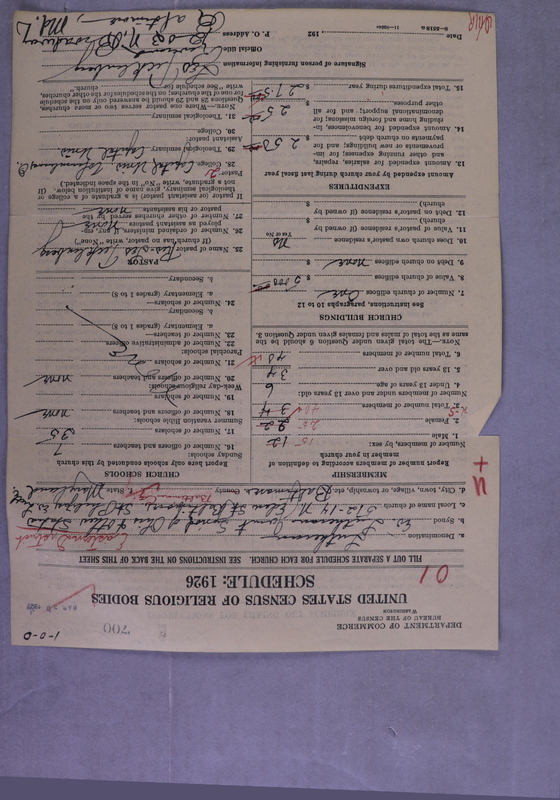 1-0-0
DEPARTMENT OF COMMERCE
BUREAU OF THE CENSUS
WASHINGTON
700
UNITED STATES CENSUS OF RELIGIOUS BODIES
SCHEDULE: 1926
01
FILL OUT A SEPARATE SCHEDULE FOR EACH CHURCH. SEE INSTRUCTIONS ON THE BACK OF THIS SHEET
a. Denomination Lutheran
b. Synod Ev. Lutheran Joint Synod of Ohio & Other States Eastern District
c. Local name of church St. Philips Ev. Luth.
d. City, town, village, or township, etc. Baltimore County State Maryland
MEMBERSHIP
Report number of members according to definition of member in your church
Number of members, by sex:
1. Male 12 15
2. Female 22 25
3. Total number of members 34 40
Number of members under and over 13 years old:
4. Under 13 years of age 6
5. 13 years old and over 34
6. Total number of members 40
NOTE.—The total given under Question 6 should be the same as the total of males and females given under Question 3.
CHURCH BUILDINGS
See instructions, paragraphs 10 to 12
7. Number of church edifices One
8. Value of church edifices $ 5000
9. Debt on church edifices $ none
10. Does church own pastor's residence No
Yes or No
11. Value of pastor's residence (if owned by church) $
12. Debt on pastor's residence (if owned by church) $
EXPENDITURES
Amount expended by your church during last fiscal year
13. Amount expended for salaries, repairs, and other running expenses; for improvements or new building; and for payments on church debt $ 250
14. Amount expended for benevolences, including home and foreign missions; for denominational support; and for all other purposes $ 25
15. Total expenditures during year $ 275
CHURCH SCHOOLS
Report here only schools conducted by this church
Sunday schools:
16. Number of officers and teachers 7
17. Number of scholars 35
Summer vacation Bible schools:
18. Number of officers and teachers none
19. Number of scholars
Week-day religious schools:
20. Number of officers and teachers none
21. Number of scholars
Parochial schools:
22. Number of administrative officers
23. Number of teachers—
a. Elementary (grades 1 to 8)
b. Secondary
24. Number of scholars—
a. Elementary (grades 1 to 8)
b. Secondary
PASTOR
25. Name of pastor
(If church has no pastor, write "None")
26. Number of ordained ministers, if any, employed as assistant pastors None
27. Number of other churches served by the pastor or his assistants none
If pastor (or assistant pastor) is a graduate of a college or theological seminary, give name of institution below. (If not a graduate, write "No" in the space indicated.)
Pastor:
28. College Capital Univ. Columbus, O.
29. Theological seminary Capital Univ.
Assistant pastor:
30. College
31. Theological seminary
NOTE.—Where one pastor serves two or more churches, Questions 28 and 29 should be answered only on the schedule for one of the churches; on the schedules for the other churches, write "See schedule for church."
Signature of person furnishing information
Official title
Date 192
P. O. Address 803 N. Broadway
Baltimore, Md.